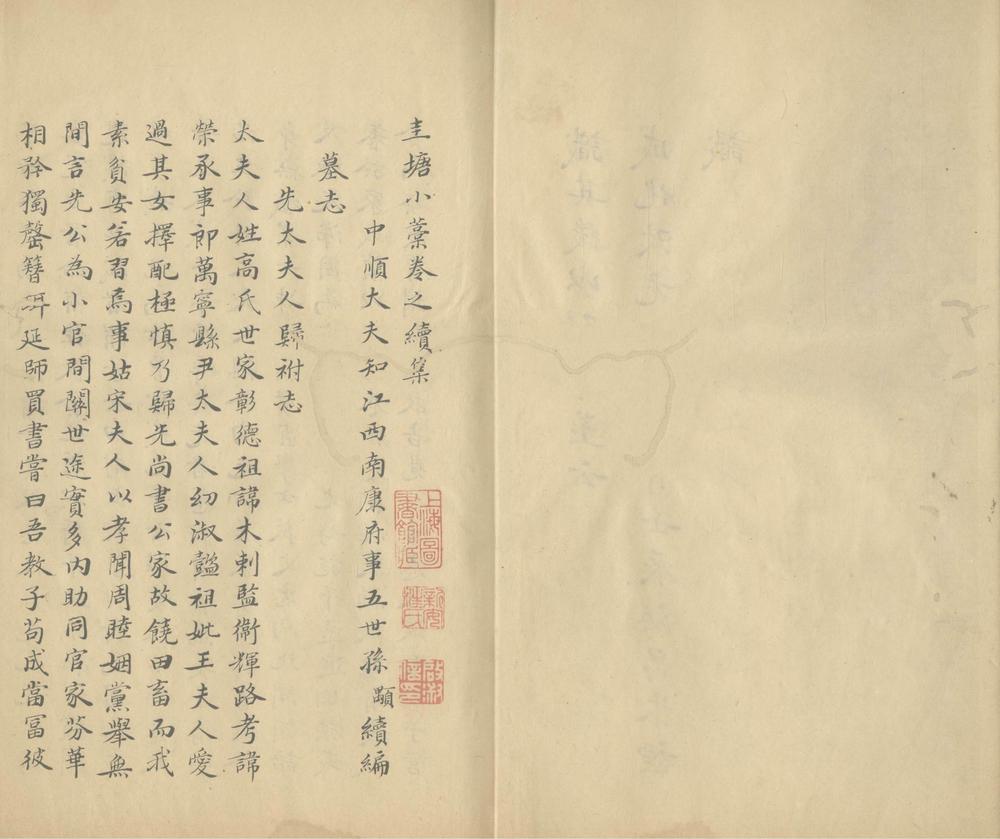 圭塘小藁卷之續集
中順大夫知江西南康府事五世孫顒續編
墓志
先太夫人歸祔志
太夫人姓高氏世家彰德祖諱木剌監衛輝路考諱
榮承事郎萬寧縣尹太夫人幼淑懿祖妣王夫人愛
過其女擇配極慎乃歸先尚書公家故饒田畜而我
素貧安若習焉事姑宋夫人以孝聞周睦姻黨舉無
間言先公為小官間關世途實多内助同官家芬華
相矜獨罄簪珥延師買書嘗曰吾教子苟成當冨彼
上海圖書館藏
新安汪氏
啟淑信印